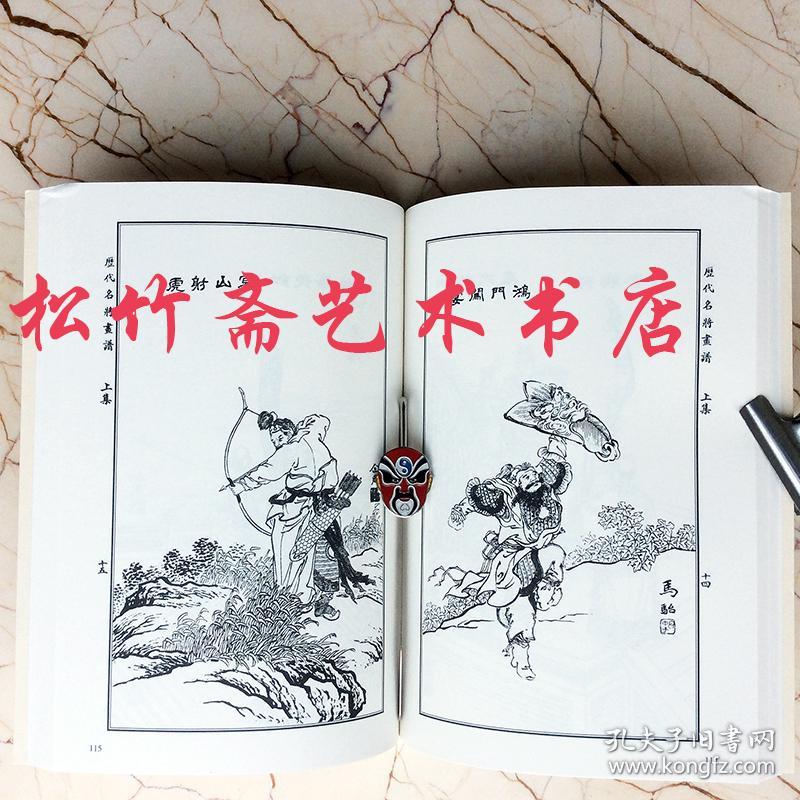 松竹斋艺术书店
鴻門闖宴
馬駘
歷代名將畫譜
上集
十四
山射虎
歷代名將畫譜
上集
十五
115
孔夫子旧書网
www.kongfz.com